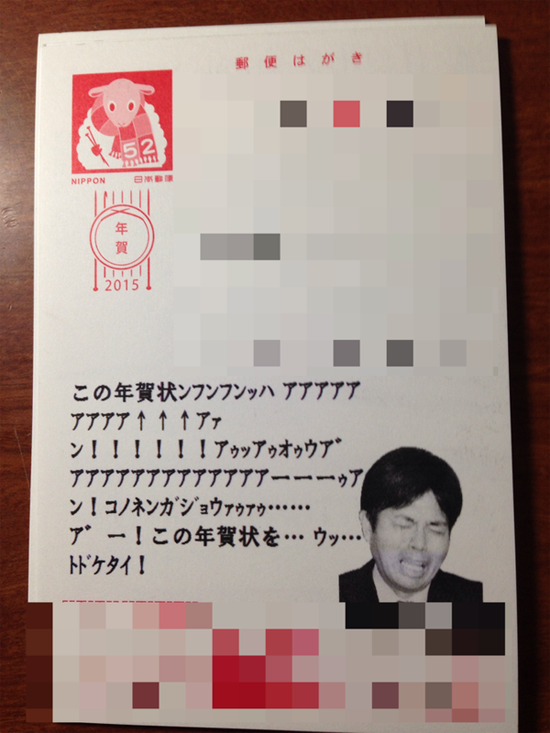 郵便はがき
52
NIPPON 日本郵便
年賀
2015
この年賀状ﾝﾌﾝﾌﾝｯﾊ ｱｱｱｱｱ
ｱｱｱｱ↑↑↑ｱｧ
ﾝ！！！！！！ｱｩｯｱｩｵｩｳｱﾞ
ｱｱｱｱｱｱｱｱｱｱｱｱｱーーーｩｱ
ﾝ！ｺﾉﾈﾝｶﾞｼﾞｮｳｧｩｧｩ……
ｱﾞー！この年賀状を… ｳｯ…
ﾄﾄﾞｹﾀｲ！